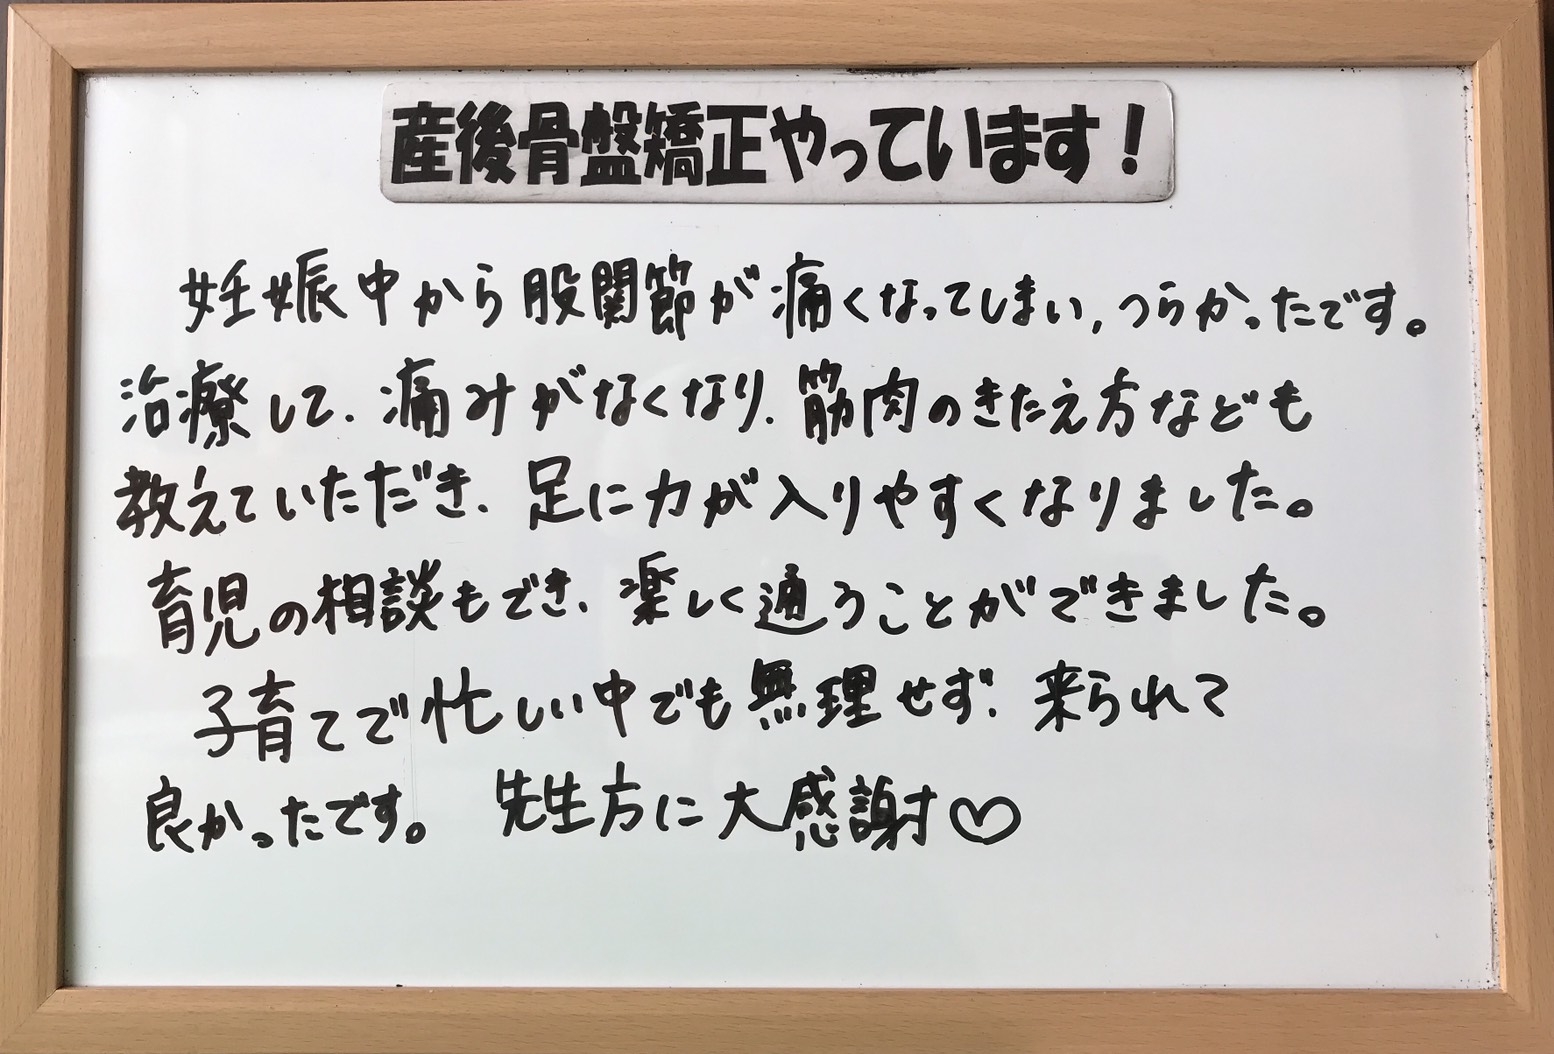 産後骨盤矯正やっています!
妊娠中から股関節が痛くなってしまい、つらかったです。
治療して、痛みがなくなり、筋肉のきたえ方なども
教えていただき、足に力が入りやすくなりました。
育児の相談もでき、楽しく通うことができました。
子育てで忙しい中でも無理せず、来られて
良かったです。 先生方に大感謝♡